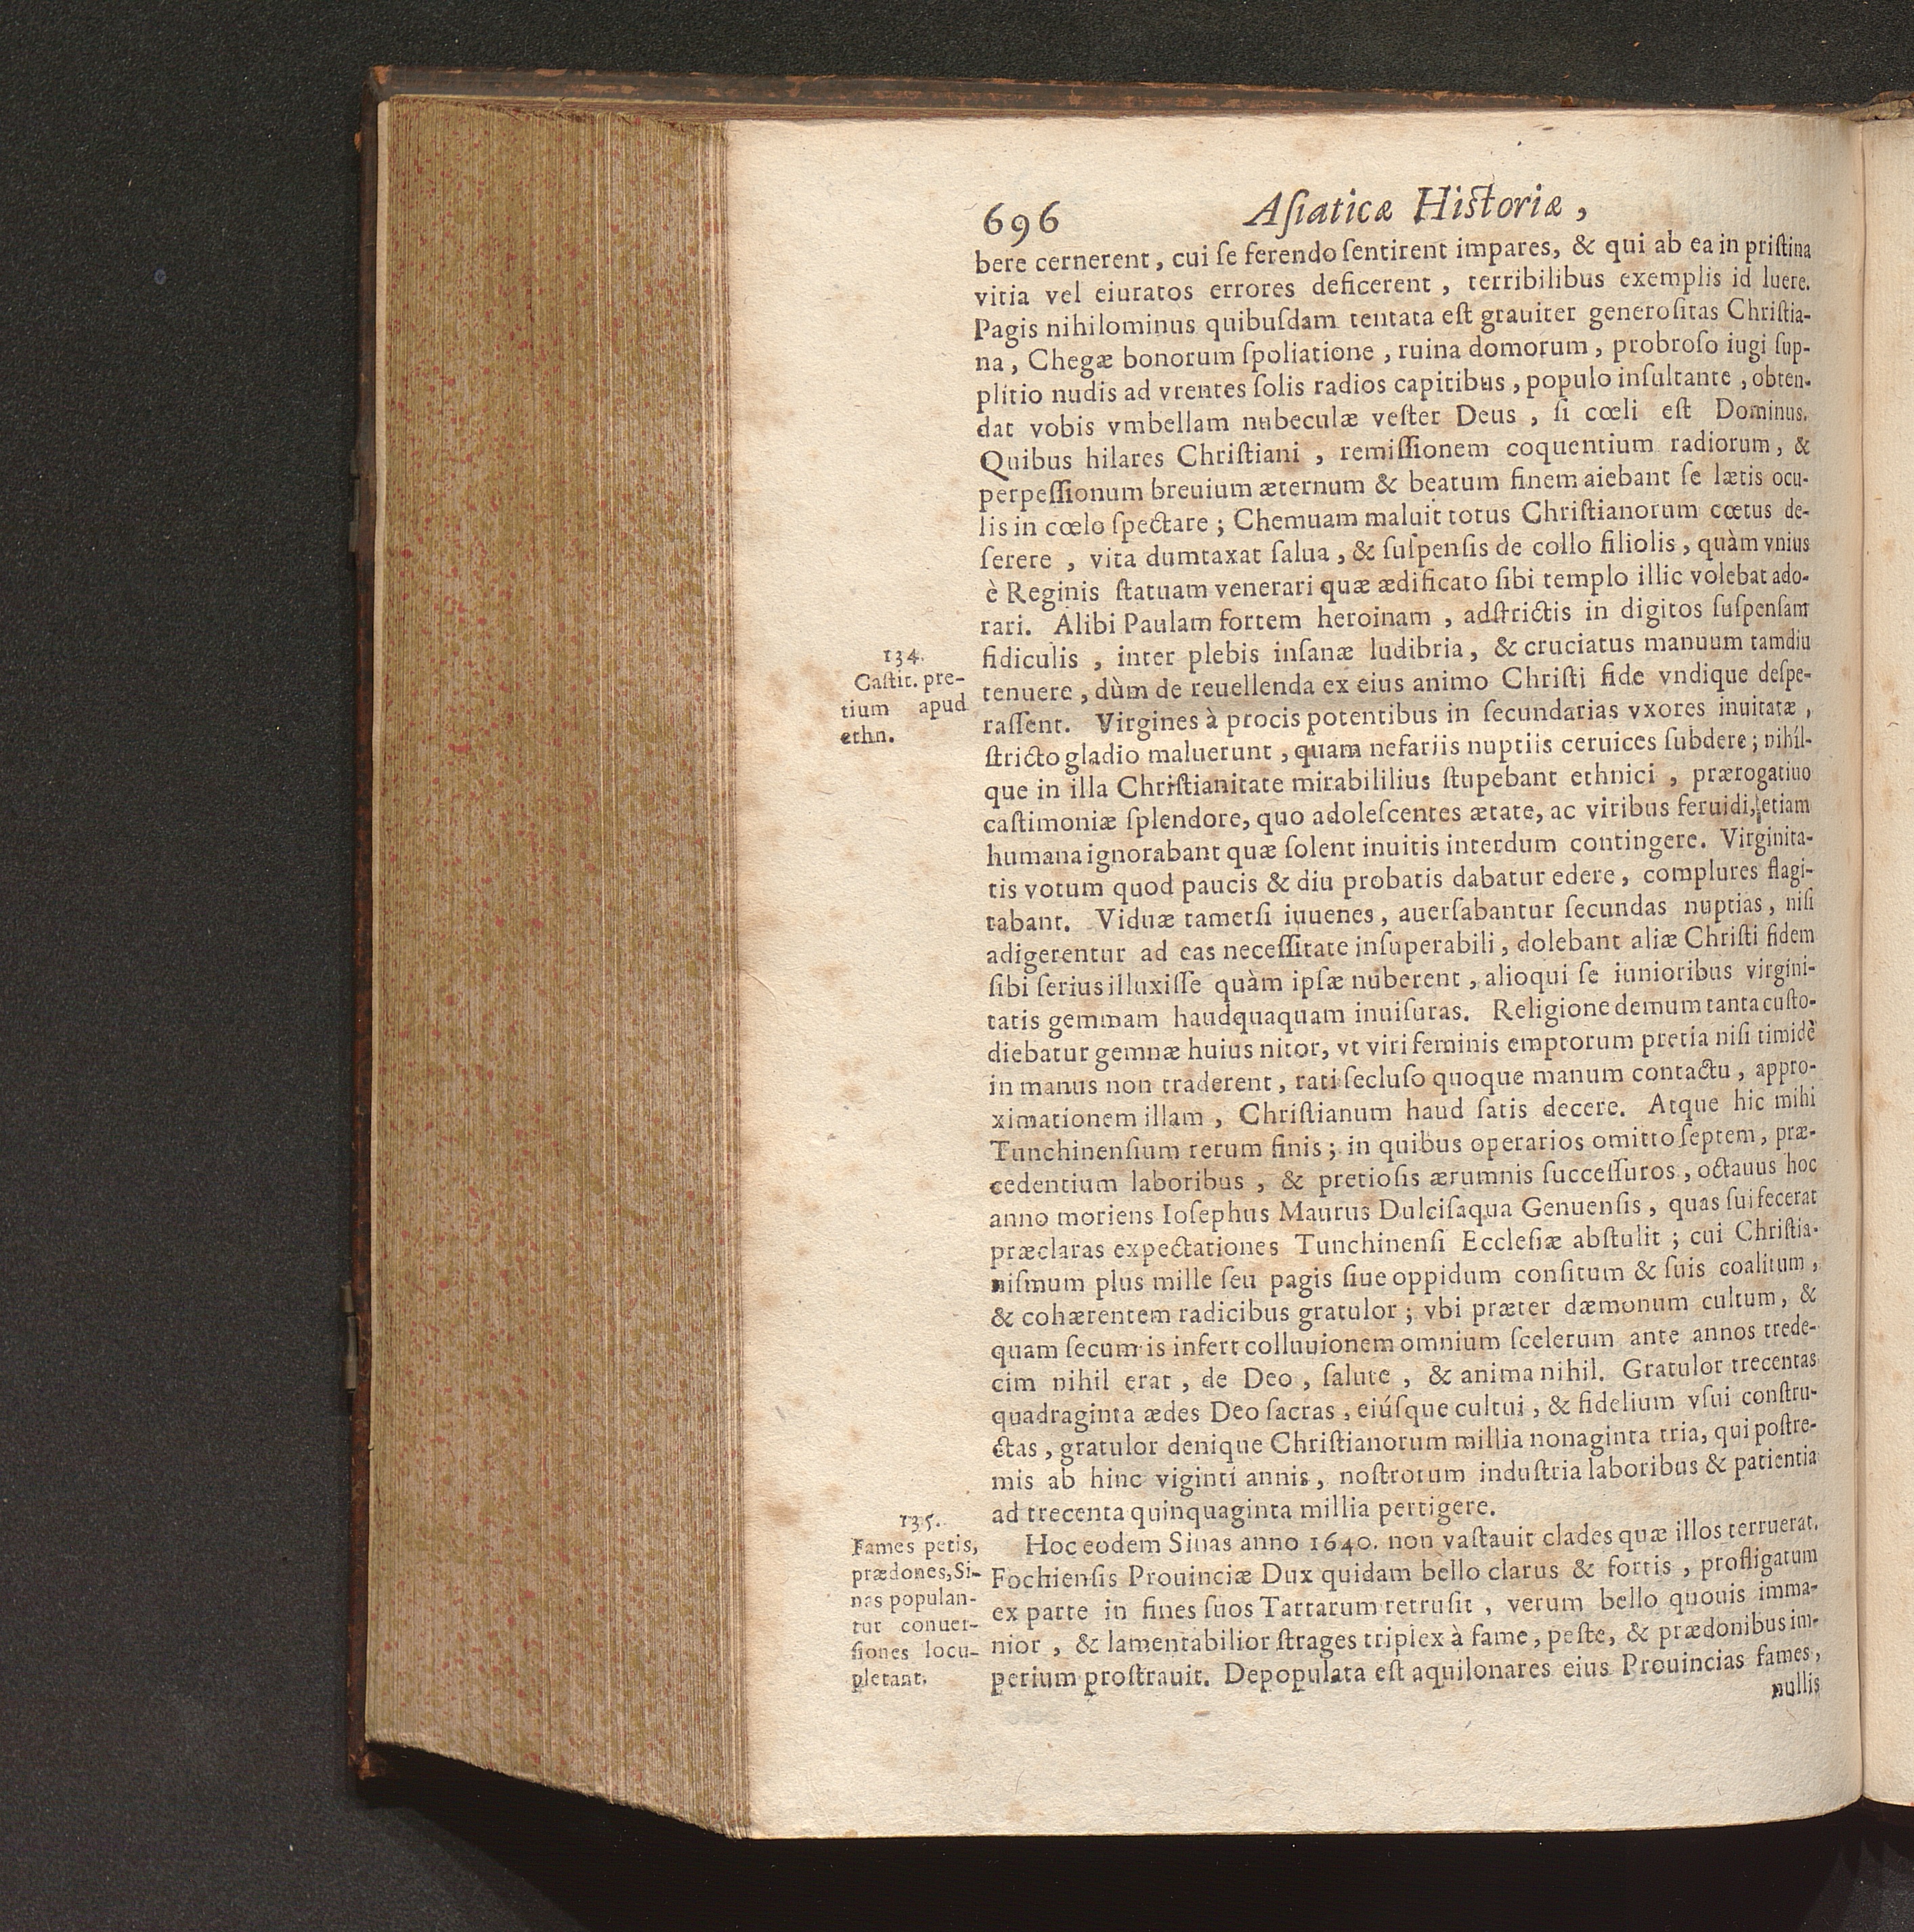 696
Aſiaticæ Hiſtoriæ,
bere cernerent, cui ſe ferendo ſentirent impares, & qui ab ea in priſtina
vitia vel eiuratos errores deficerent, terribilibus exemplis id luere.
Pagis nihilominus quibuſdam tentata eſt grauiter generoſitas Chriſtia-
na, Chegæ bonorum ſpoliatione, ruina domorum, probroſo iugi ſup-
plitio nudis ad vrentes ſolis radios capitibus, populo inſultante, obten-
dat vobis vmbellam nubeculæ veſter Deus, ſi cœli eſt Dominus.
Quibus hilares Chriſtiani, remiſſionem coquentium radiorum, &
perpeſſionum breuium æternum & beatum finem aiebant ſe lætis ocu-
lis in cœlo ſpectare; Chemuam maluit totus Chriſtianorum cœtus de-
ſerere, vita dumtaxat ſalua, & ſuſpenſis de collo filiolis, quàm vnius
è Reginis ſtatuam venerari quæ ædificato ſibi templo illic volebat ado-
rari. Alibi Paulam fortem heroinam, adſtrictis in digitos ſuſpenſam
fidiculis, inter plebis inſanæ ludibria, & cruciatus manuum tamdiu
tenuere, dùm de reuellenda ex eius animo Chriſti fide vndique deſpe-
raſſent. Virgines à procis potentibus in ſecundarias vxores inuitatæ,
ſtricto gladio maluerunt, quam nefariis nuptiis ceruices ſubdere; nihil-
que in illa Chriſtianitate mirabililius ſtupebant ethnici, prærogatiuo
caſtimoniæ ſplendore, quo adoleſcentes ætate, ac viribus feruidi, etiam
humana ignorabant quæ ſolent inuitis interdum contingere. Virginita-
tis votum quod paucis & diu probatis dabatur edere, complures flagi-
tabant. Viduæ tametſi iuuenes, auerſabantur ſecundas nuptias, niſi
adigerentur ad eas neceſſitate inſuperabili, dolebant aliæ Chriſti fidem
ſibi ſerius illuxiſſe quàm ipſæ nuberent, alioqui ſe iunioribus virgini-
tatis gemmam haudquaquam inuiſuras. Religione demum tanta cuſto-
diebatur gemnæ huius nitor, vt viri feminis emptorum pretia niſi timidè
in manus non traderent, rati ſecluſo quoque manum contactu, appro-
ximationem illam, Chriſtianum haud ſatis decere. Atque hic mihi
Tunchinenſium rerum finis; in quibus operarios omitto ſeptem, præ-
cedentium laboribus, & pretioſis ærumnis ſucceſſuros, octauus hoc
anno moriens Ioſephus Maurus Dulciſaqua Genuenſis, quas ſui fecerat
præclaras expectationes Tunchinenſi Eccleſiæ abſtulit; cui Chriſtia-
niſmum plus mille ſeu pagis ſiue oppidum conſitum & ſuis coalitum,
& cohærentem radicibus gratulor; vbi præter dæmonum cultum, &
quam ſecum is infert colluuionem omnium ſcelerum ante annos trede-
cim nihil erat, de Deo, ſalute, & anima nihil. Gratulor trecentas
quadraginta ædes Deo ſacras, eiúſque cultui, & fidelium vſui conſtru-
ctas, gratulor denique Chriſtianorum millia nonaginta tria, qui poſtre-
mis ab hinc viginti annis, noſtrorum induſtria laboribus & patientia
ad trecenta quinquaginta millia pertigere.
Hoc eodem Sinas anno 1640. non vaſtauit clades quæ illos terruerat.
Fochienſis Prouinciæ Dux quidam bello clarus & fortis, profligatum
ex parte in fines ſuos Tartarum retruſit, verum bello quouis imma-
nior, & lamentabilior ſtrages triplex à fame, peſte, & prædonibus im-
perium proſtrauit. Depopulata eſt aquilonares eius Prouincias fames,
nullis
134.
Caſtit. pre-
tium apud
ethn.
135.
Fames petis,
prædones, Si-
nas populan-
tur conuer-
ſiones locu-
pletant.